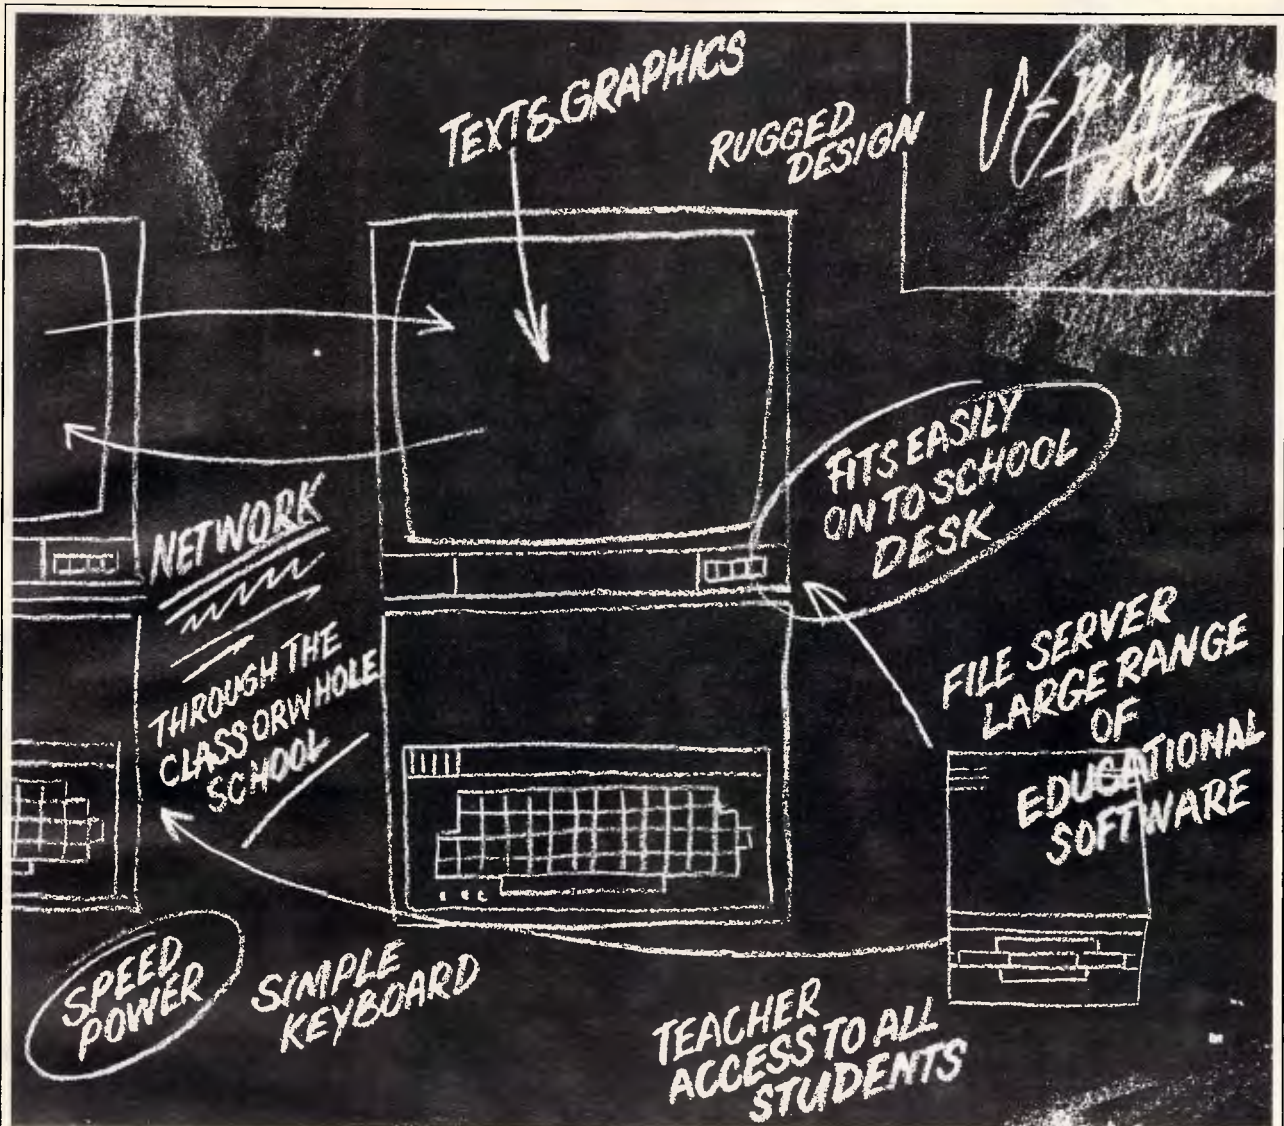 TEXT & GRAPHICS
RUGGED
DESIGN
FITS EASILY
ON TO SCHOOL
DESK
NETWORK
THROUGH THE
CLASS OR WHOLE
SCHOOL
FILE SERVER
LARGE RANGE
OF
EDUCATIONAL
SOFTWARE
SPEED
POWER
SIMPLE
KEYBOARD
TEACHER
ACCESS TO ALL
STUDENTS